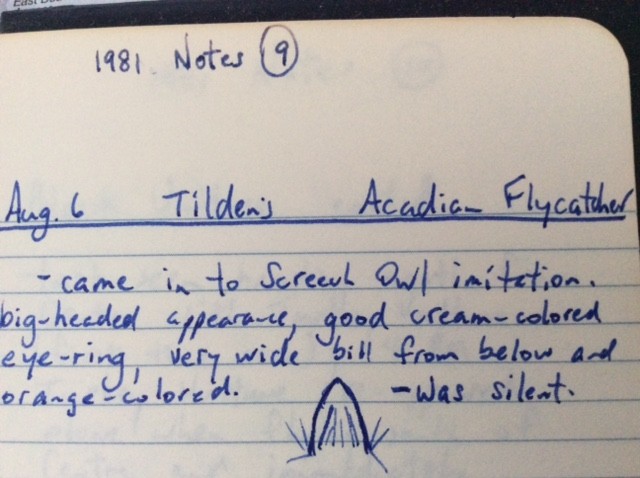 1981 Notes 9
Aug. 6 Tilden's Acadian Flycatcher
- came in to Screech Owl imitation.
big-headed appearance, good cream-colored
eye-ring, very wide bill from below and
orange-colored. - Was silent.